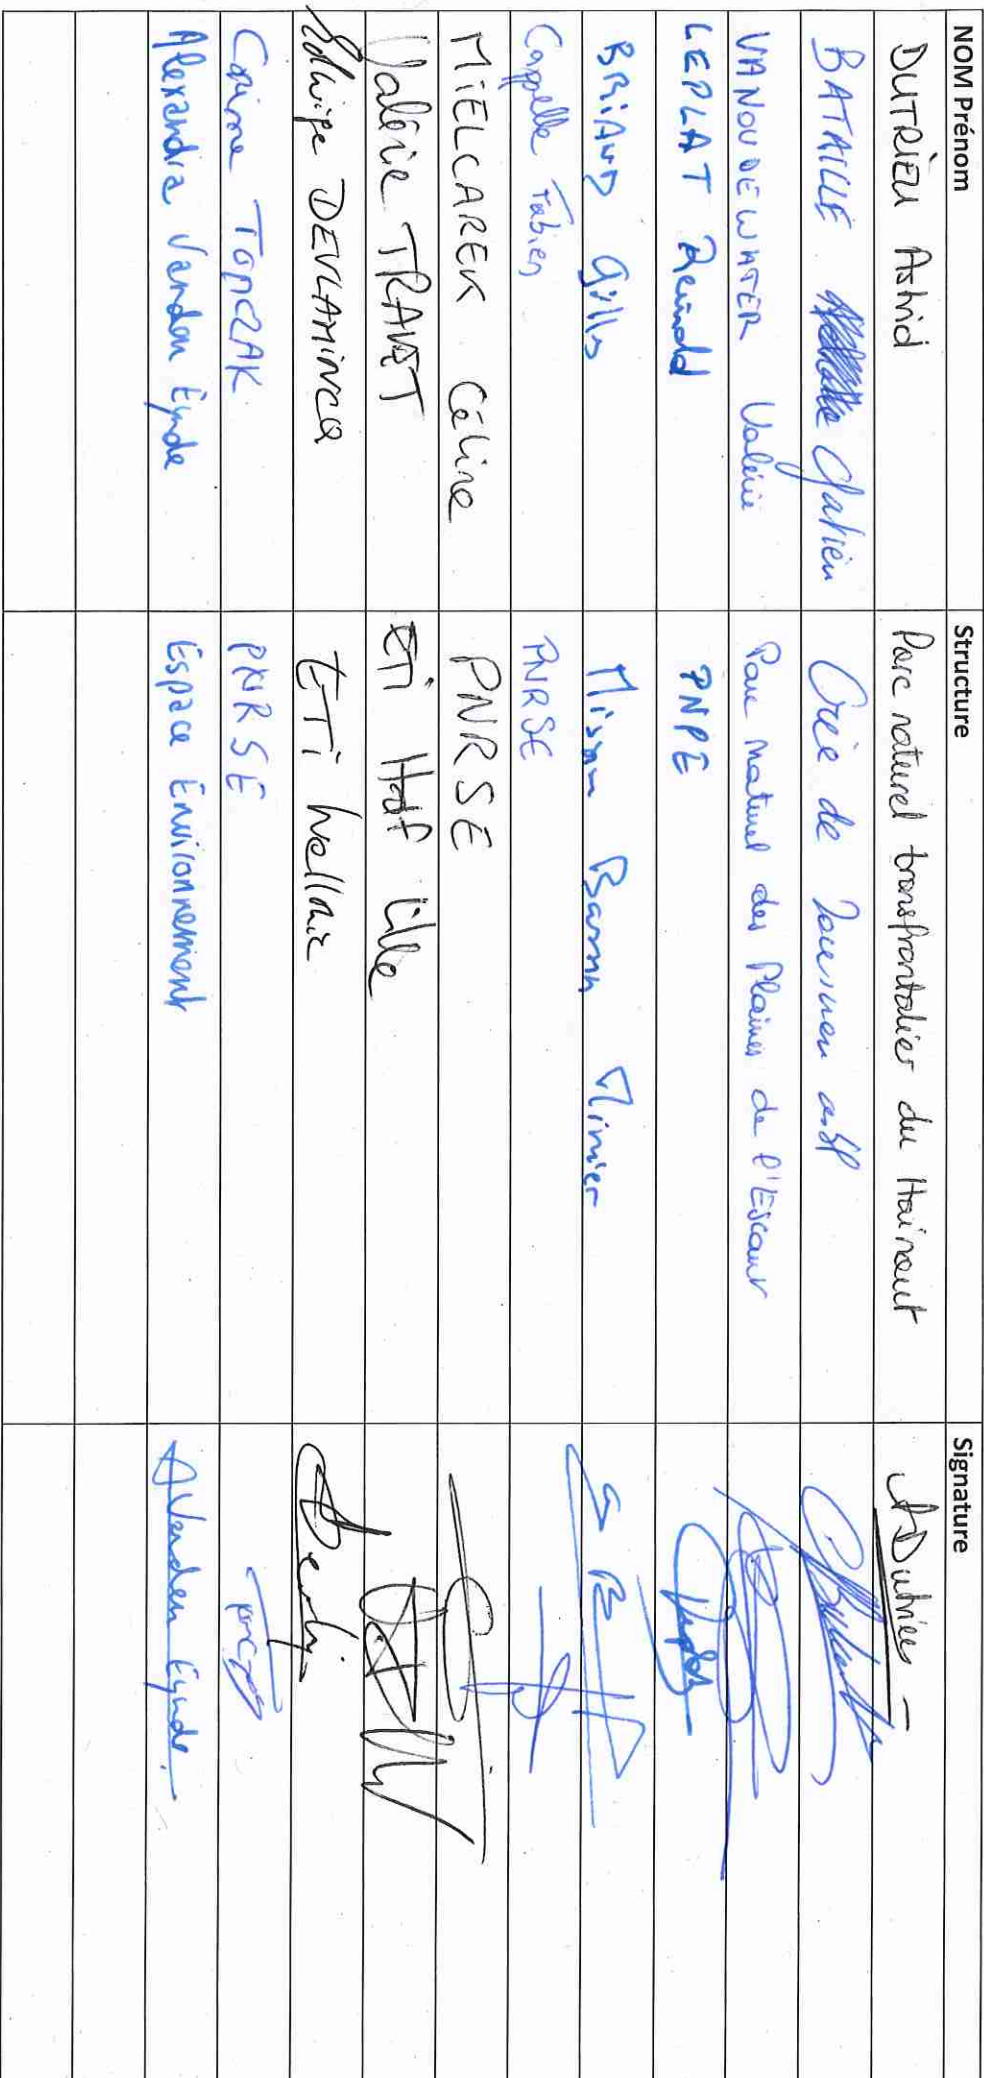 NOM Prénom Structure Signature
DUTRIEU Astrid Parc naturel transfrontalier du Hainaut ADutrieu
BATAILLE Gatien Crie de Mouscron asbl
VANOUDEWATER Valérie Parc naturel des Plaines de l'Escaut
LEPLAT Reinold PNPE
BRIAND Gilles Mission Bassin Minier GB
Cappelle Fabien PNRSE
MIELCAREK Céline PNRSE
Valérie TRANST ETI HdF Lille
Edwige DEVLAMINCQ ETI Wallonie
Corinne TOMCZAK PNRSE
Alexandra Vanden Eynde Espace Environnement AVanden Eynde.